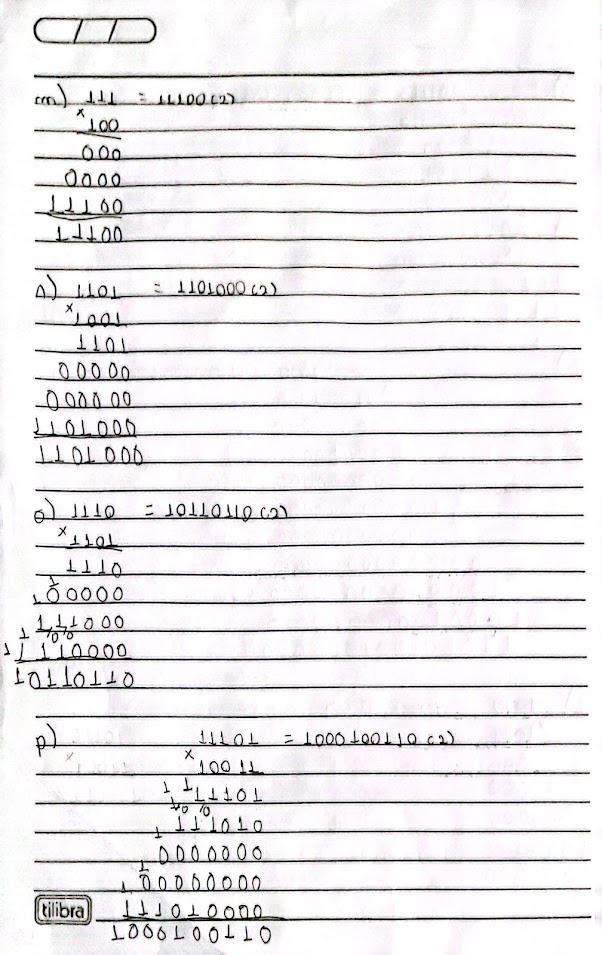 m) 111 = 11100(2)
x 100
000
0000
11100
11100
n) 1101 = 1101000(2)
x 1001
1101
00000
000000
1101000
1101000
o) 1110 = 10110110(2)
x 1101
1110
00000
111000
1110000
10110110
p) 11101 = 1000100110(2)
x 10011
11101
111010
0000000
00000000
111010000
1000100110
tilibra